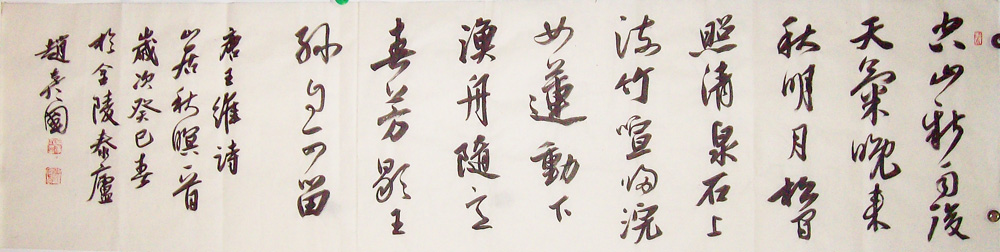 空山新雨後
天氣晚來
秋明月松間
照清泉石上
流竹喧歸浣
女蓮動下
漁舟隨意
春芳歇王
孫自可留
唐王維詩
山居秋暝一首
歲次癸巳春
於金陵泰廬
趙彥國